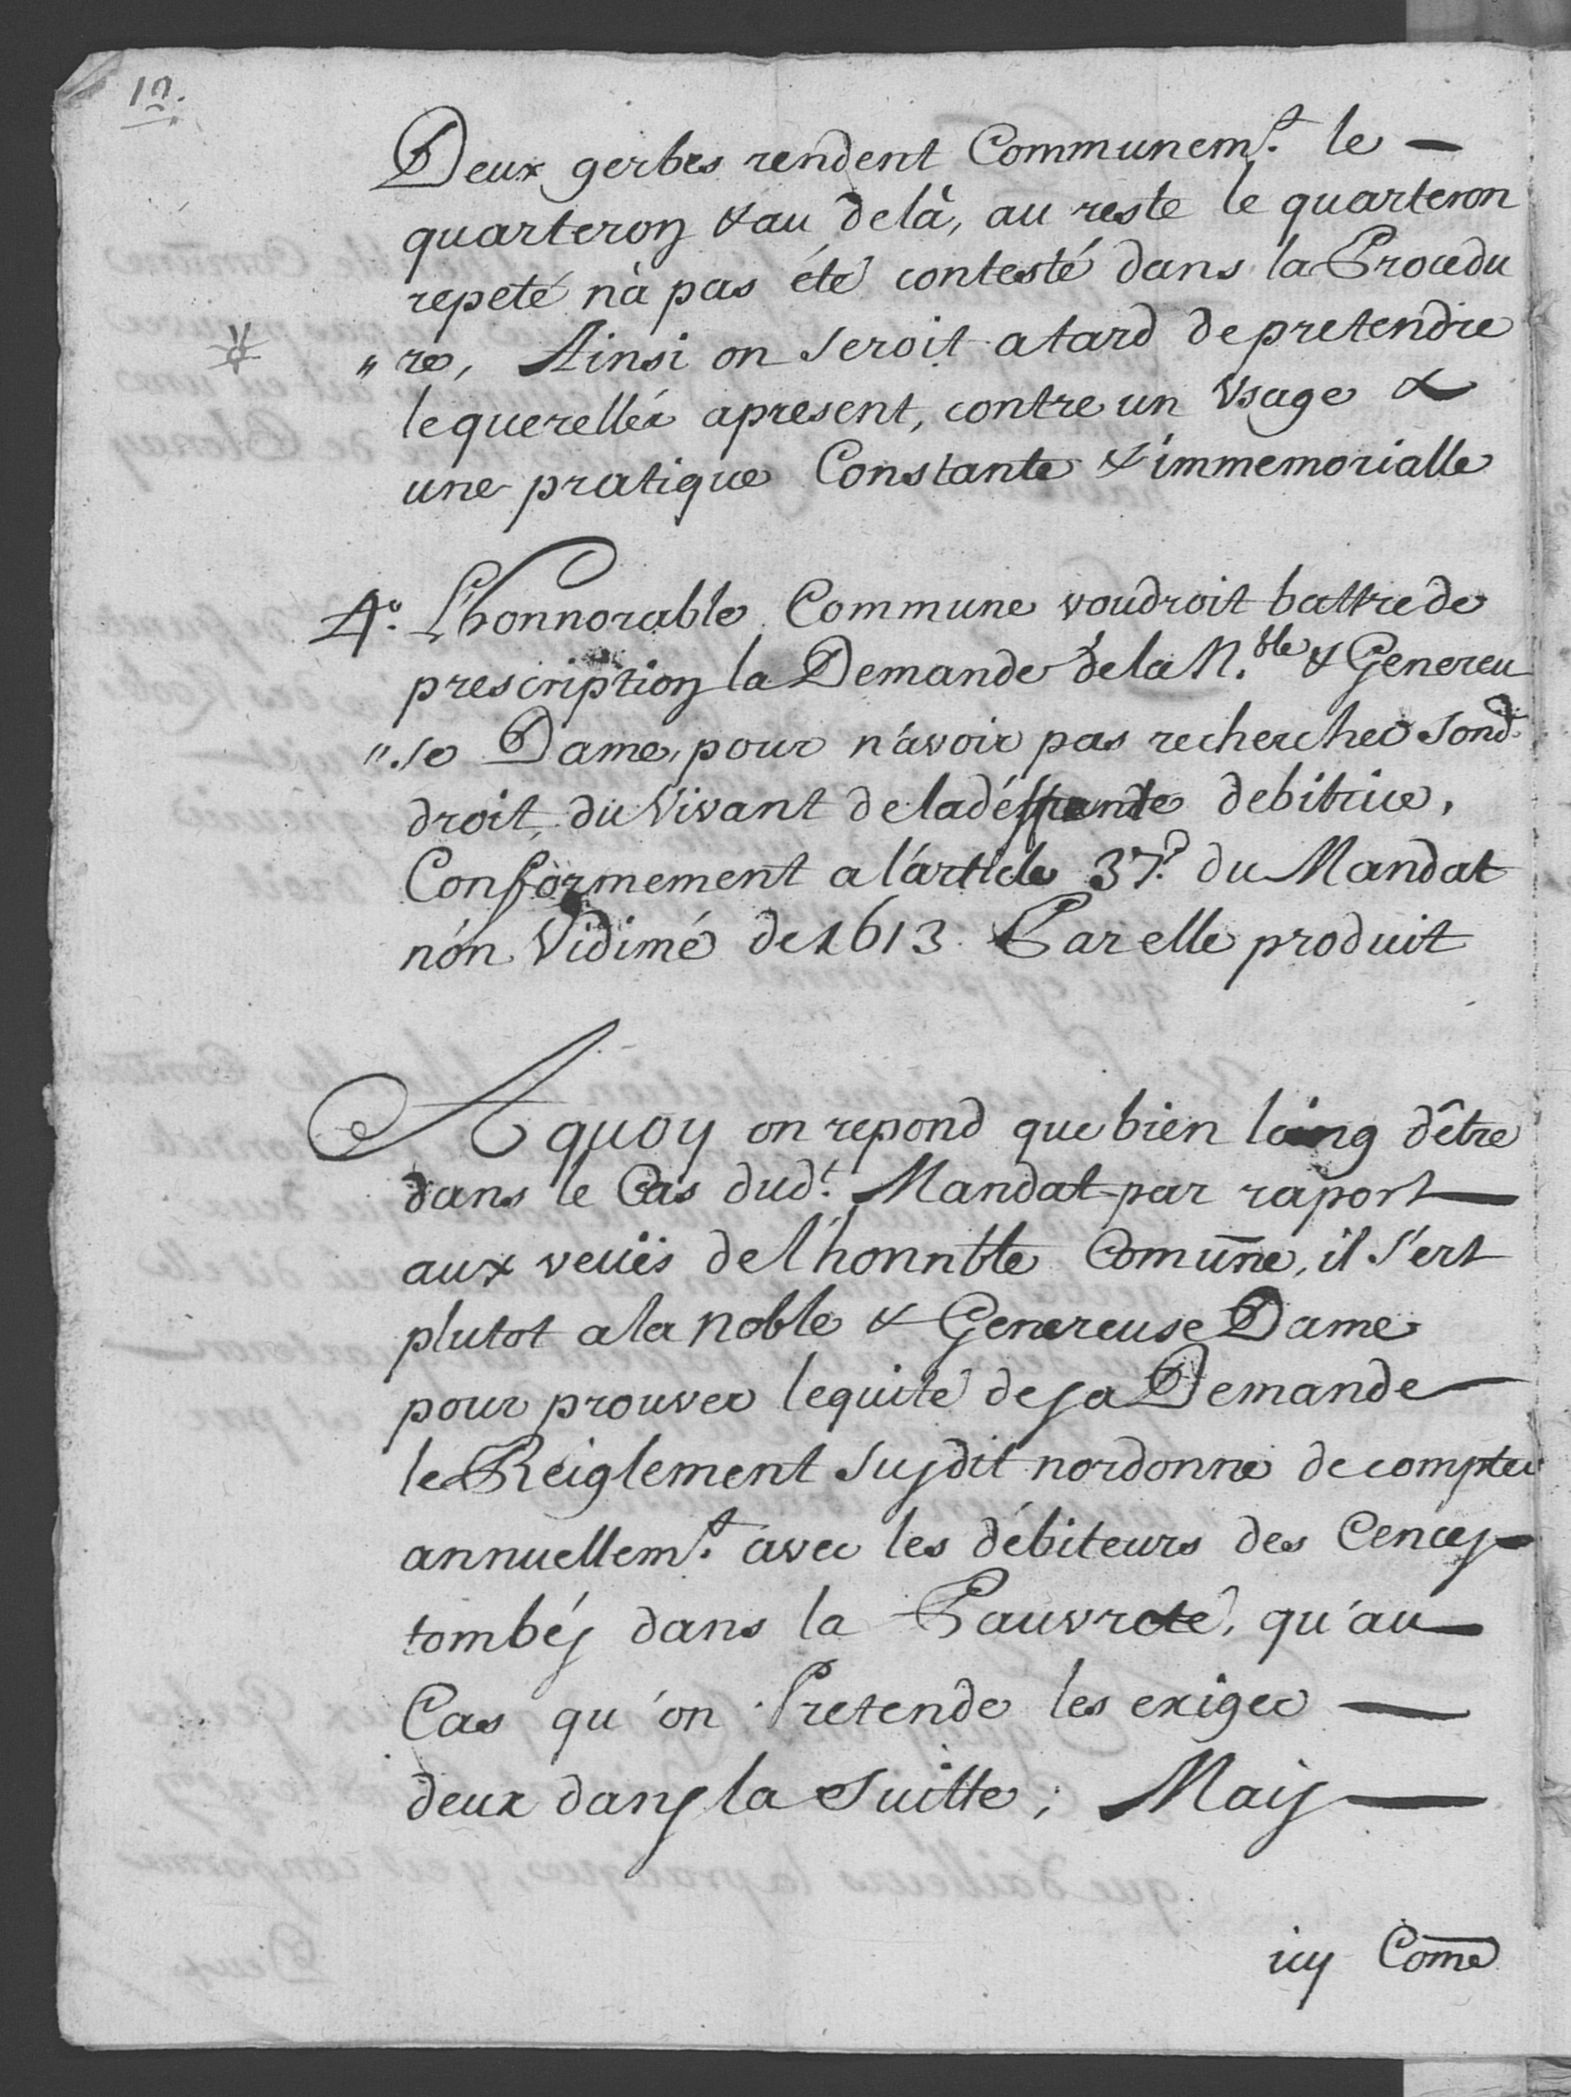 10.
Deux gerbes rendent Communem.t le —
quarteron & au delà, au reste le quarteron
repeté n'à pas été contesté dans la Procedu
" re, Ainsi on seroit atard de pretendre
le querellér apresent, contre un Vsage &
une pratique Constante & immemorialle
4.° L'honnorable Commune voudroit battre de
prescription la Demande de la N.ble & Genereu
" se Dame, pour n'avoir pas recherchéo son
droit, du Vivant de la déffunte debitrice,
Conformement a l'article 37.e du Mandat
nón Vidimé de 1613 Par elle produit
A quoy on repond que bien loing d'être
dans le Cas dud.t Mandat par raport —
aux veuës de l'honnble Comūne, il s'ert
plutot a la noble & Genereuse Dame
pour prouver lequité de sa Demande
le Reiglement susdit nordonne de compter
annuellem.t avec les débiteurs des Cences
tombés dans la Pauvreté, qu'au —
Cas qu'on Pretende les exiger —
deux dans la suitte ; Mais —
icy Come